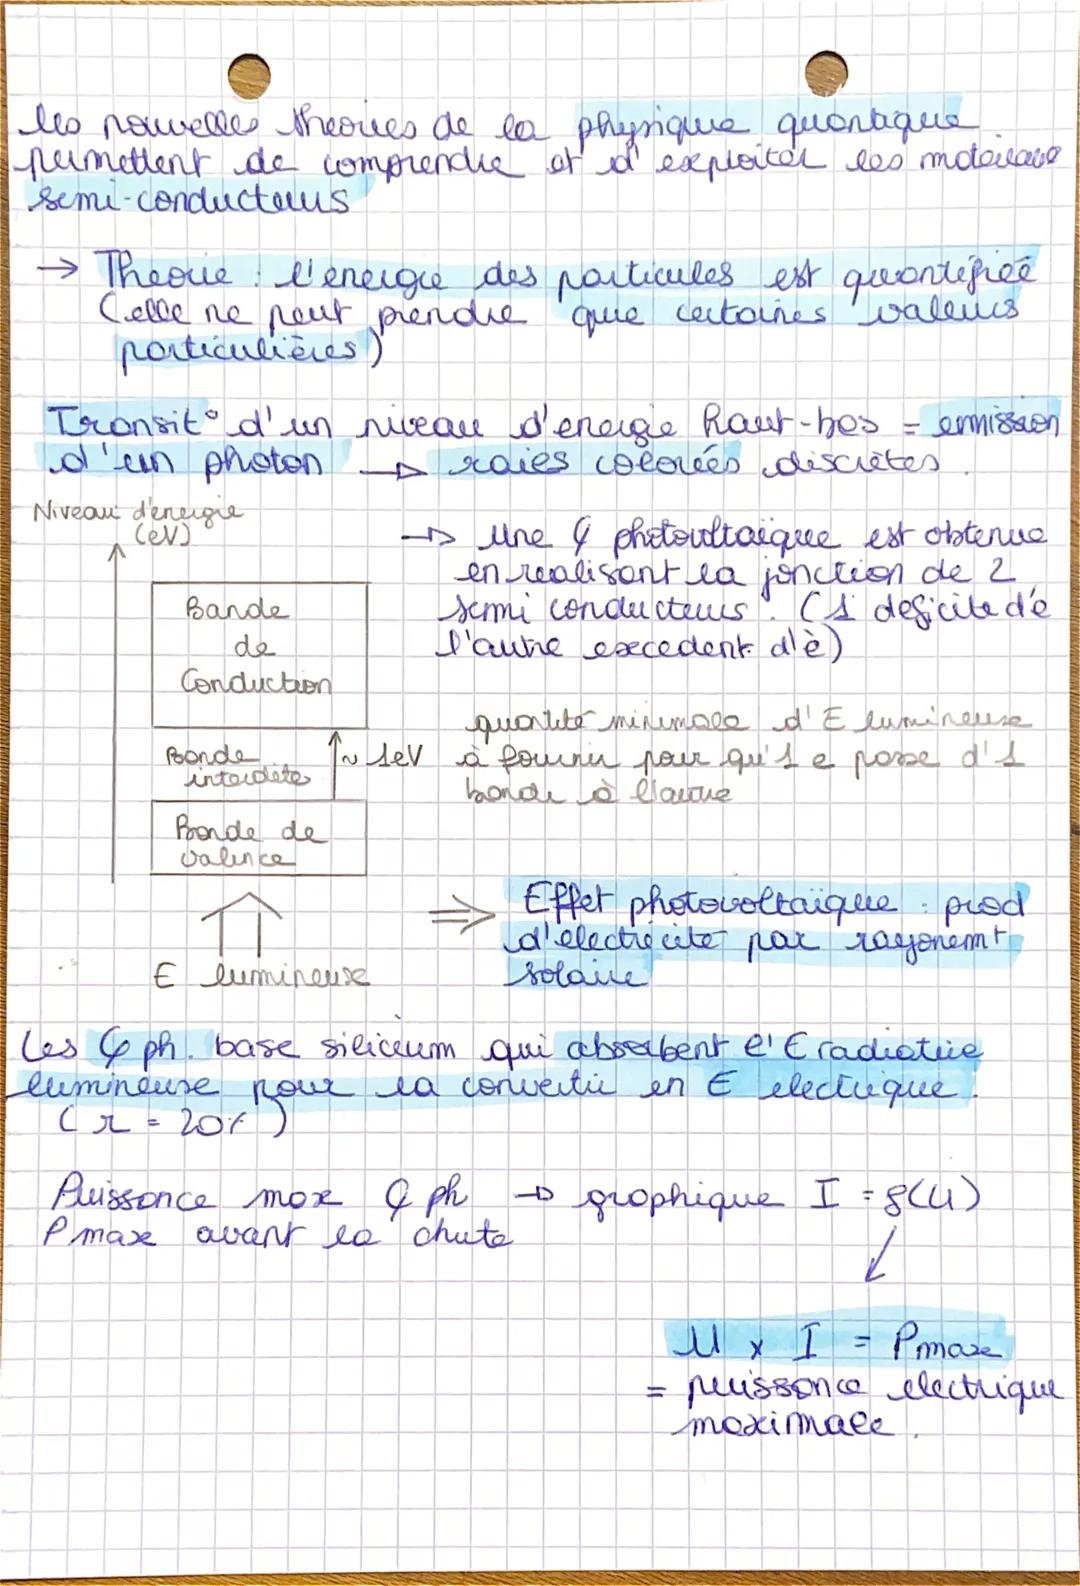 les nouvelles theories de la physique quantique
permettent de comprendre et d'exploiter les materiaux
semi-conducteurs
→ Theorie : l'energie des particules est quantifiée
(elle ne peut prendre que certaines valeurs
particulières)
Transit° d'un niveau d'energie haut-bas = emission
d'un photon → raies colorées discrètes.
Niveau d'énergie
(eV)
→ Une ¢ photovoltaïque est obtenue
en realisant la jonction de 2
semi conducteurs. (1 deficite d'é
l'autre excedent d'è)
Bande
de
Conduction
quantité minimale d'E lumineuse
à fournir pour qu'1 e passe d'1
bande à l'autre
Bande
interdite
~ 1eV
Bande de
valence
⇒ Effet photovoltaïque : prod
d'electricité par rayonemt
solaire
E lumineuse
Les ¢ ph. base silicium qui absorbent l'E radiative
lumineuse pour la convertir en E electrique.
(r = 20%)
Puissance max ¢ ph → graphique I = f(U)
Pmax avant la chute
U x I = Pmax
= puissance electrique
maximale.